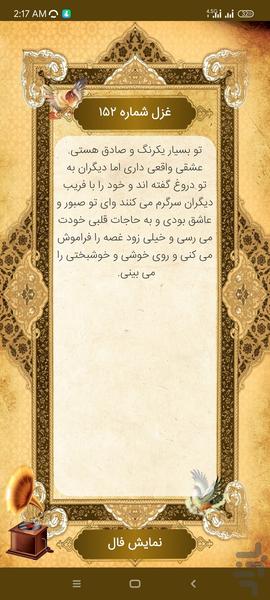 2:17 AM
غزل شماره ۱۵۲
تو بسیار یکرنگ و صادق هستی.
عشقی واقعی داری اما دیگران به
تو دروغ گفته اند و خود را با فریب
دیگران سرگرم می کنند وای تو صبور و
عاشق بودی و به حاجات قلبی خودت
می رسی و خیلی زود غصه را فراموش
می کنی و روی خوشی و خوشبختی را
می بینی.
نمایش فال